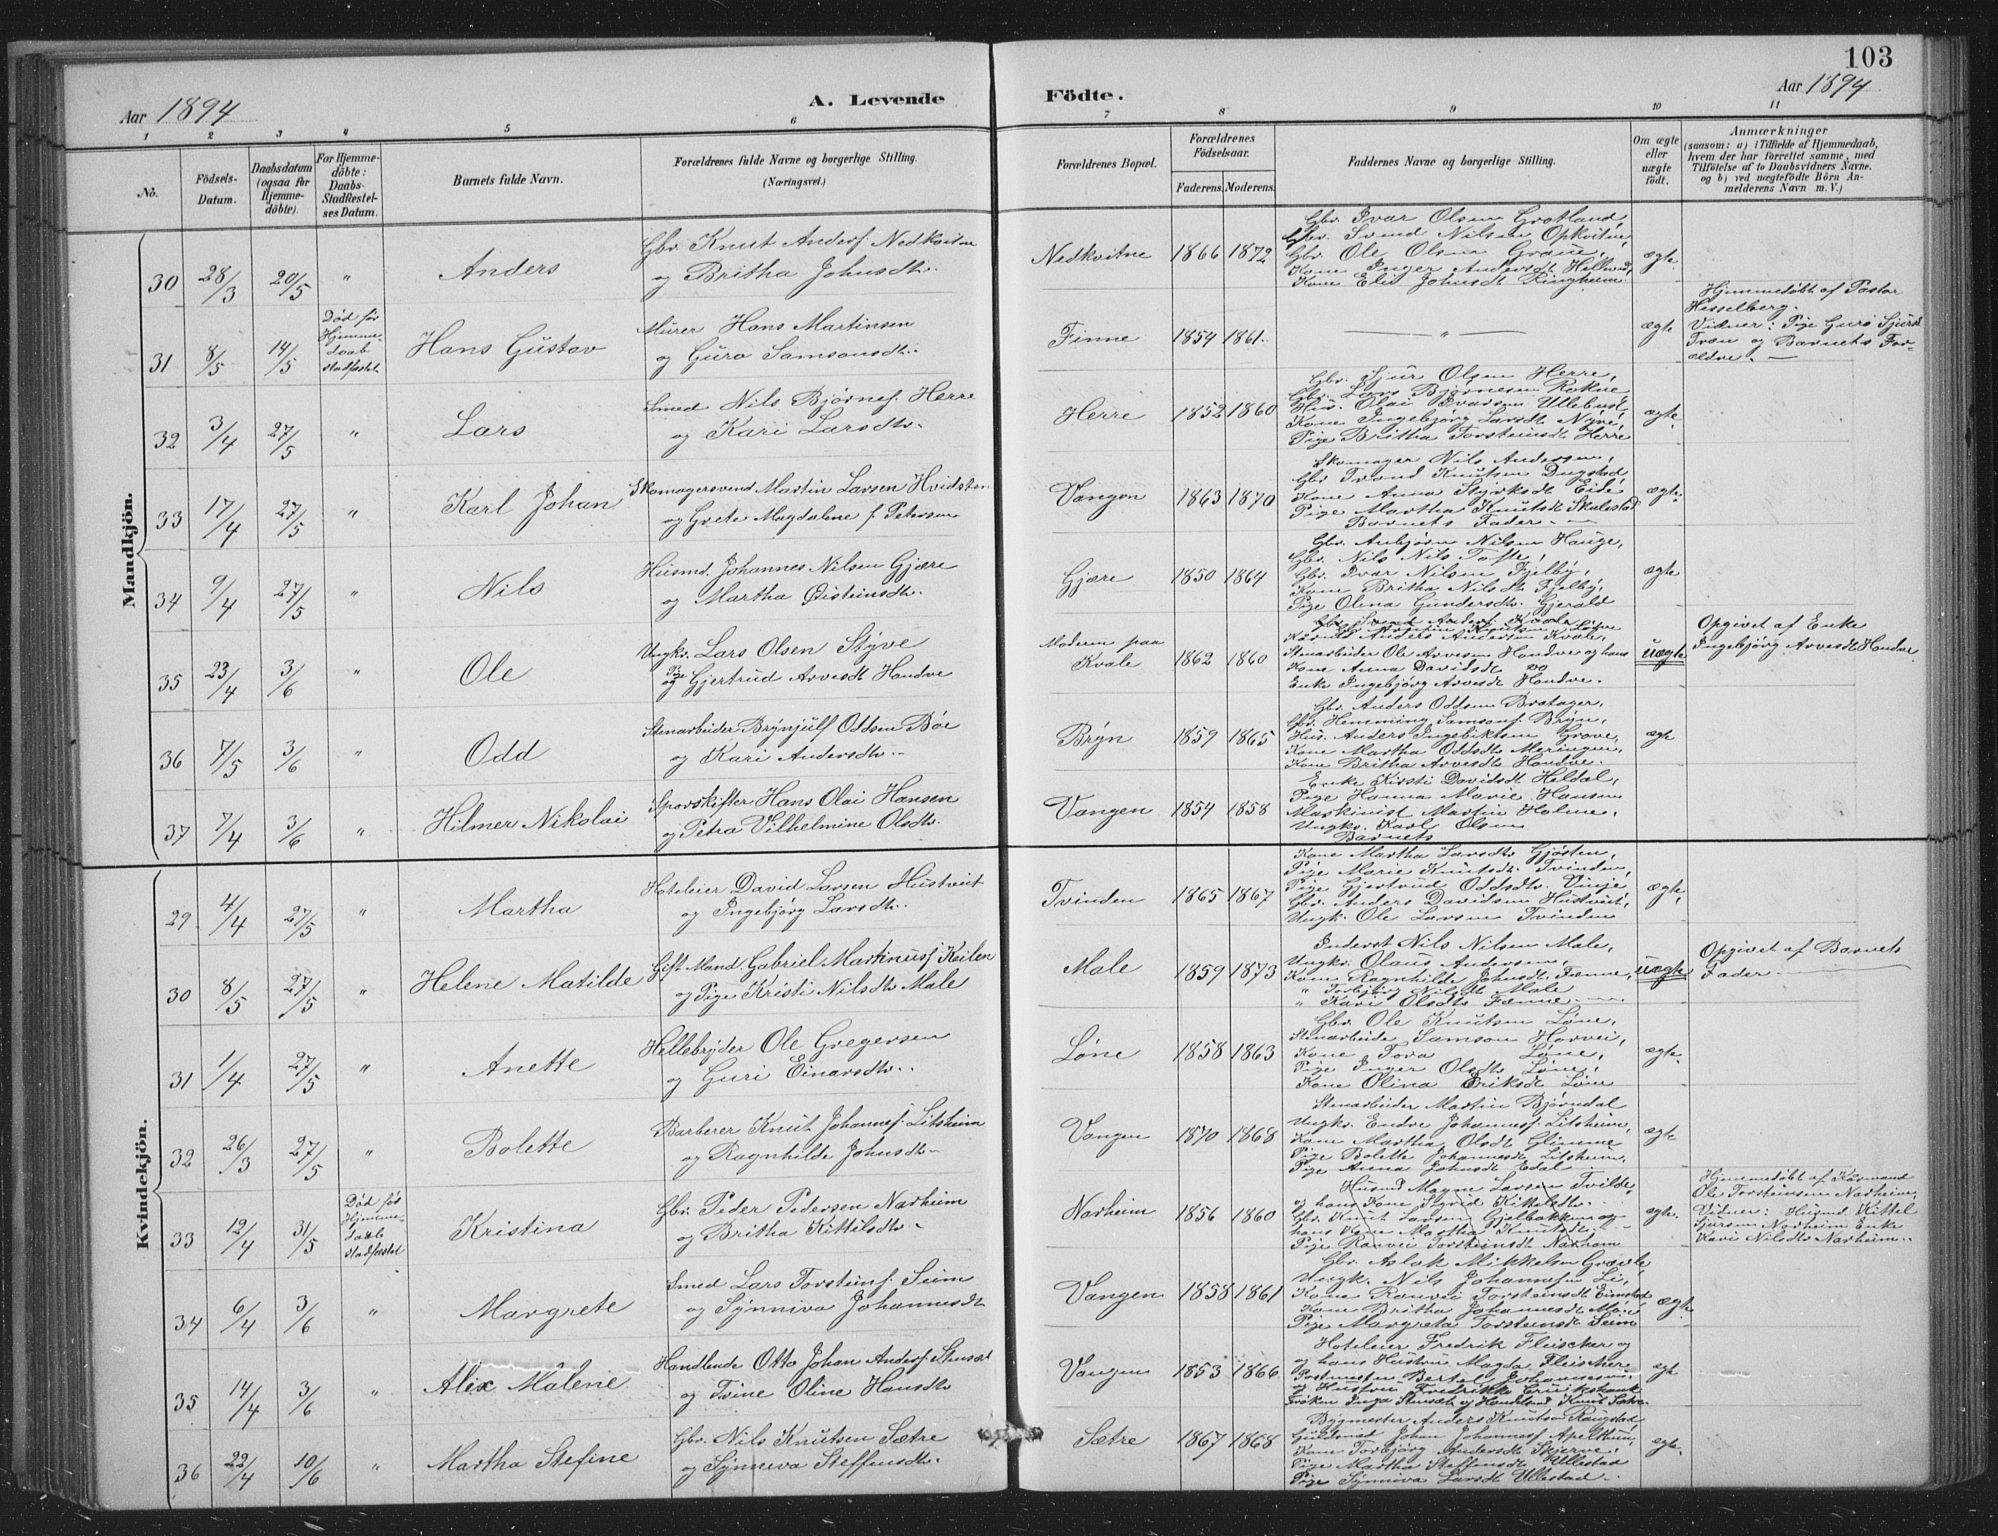 103
Aar 1894
A. Levende Födte.
Aar 1894
1 2 3 4 5 6 7 8 9 10 11
No.
Födsels-Datum.
Daabsdatum (ogsaa for Hjemmedöbte)
For Hjemmedöbte: Daabs-Stadfæstelses Datum.
Barnets fulde Navn.
Forældrenes fulde Navne og borgerlige Stilling. (Næringsvei.)
Forældrenes Bopæl.
Forældrenes Födselsaar.
Faderens. Moderens.
Faddernes Navne og borgerlige Stilling.
Om ægte eller uægte födt.
Anmærkninger
(saasom: a) i Tilfælde af Hjemmedaab,
hvem der har forrettet samme, med
Tilföielse af to Daabsvidners Navne.
og b) ved uægtefödte Börn An-
melderens Navn m. V.)
Mandkjön.
30 28/3 20/5 " Anders
Gbr. Knut Anders. Nedkvitne
og Britha Johnsdtr.
Nedkvitne 1866 1872
Gbr. Ivar Olsen Grotland,
Gbr. Svend Nilsen Opkvitne,
Gbr. Ole Olsen Graue,
Kone Inger Andersdt
Kone Eli Johnsdt Ringheim
ægte
31 8/5 14/5
Död för Hjemmedaab stadfæstet
Hans Gustav
Murer Hans Martinsen
og Guro Samsonsdtr.
Finne 1854 1861.
— " —
ægte
Hjemmedöbt af Pastor
Hesselberg.
Vidner: Pige Guro Sjursd
Tvæn og Barnets For-
ældre. —
32 3/4 27/5 " Lars
Smed Nils Björnes. Herre
og Kari Larsdtr.
Herre 1852 1860
Gbr. Sjur Olsen Herre,
Gbr. Lars Björnesen Rokne
Hus. Olai Ivarsen
Kone Ingebjörg Larsdt Nyre,
Pige Britha Torsteinsdt Herre
ægte
33 17/4 27/5 " Karl Johan
Skomagersvend Martin Larsen Hvidsten
og Grete Magdalene f. Petersen
Vangen 1863 1870
Skomager Nils Andersen,
Gbr Trond Knutsen Dugstad
Kone Anna Styrksdt Eide
Pige Martha Knutsdt Skulestad
Barnets Fader. —
ægte
34 9/4 27/5 " Nils
Husmd. Johannes Nilsen Gjære
og Martha Östeinsdtr.
Gjære 1850 1864
Gbr. Anbjörn Nilsen Hauge,
Gbr. Nils Nils Tofte,
Gbr. Ivar Nilsen Fjelby,
Kone Britha Nilsdt Fjelby,
Pige Olina Gundersdtr. Gjerald
ægte
35 23/4 3/6 " Ole
Ungkr. Lars Olsen Styve
og Pige Gjertrud Arvesdt Handve
Moderen paa Kvale 1862 1860
Stenarbeider Ole Arvesen Handve og hans
Kone Anna Davidsdt
Enke Ingebjörg Arvesdt Handve.
uægte
Opgivet af Enke
Ingebjörg Arvesdt Handve
36 7/5 3/6 " Odd
Stenarbeider Brynjulf Oddsen Böe
og Kari Andersdtr.
Bryn 1859 1865
Gbr. Anders Oddsen Bratager,
Gbr. Hemming Samsons. Bryn,
Hus. Anders Ingebriktsen Grove,
Kone Martha Oddsdt Möringen,
Kone Britha Arvesdt Handve.
ægte
37 7/4 3/6 " Hilmer Nikolai
Sporskifter Hans Olai Hansen
og Petra Vilhelmine Olsdtr.
Vangen 1854 1858
Enke Kirsti Davidsdt Heldal,
Pige Hanna Marie Hansen
Maskinist Martin Holme,
Ungkr. Karl Olsen
Barnets
Kvindekjön.
29 4/4 27/5 " Martha
Hoteleier David Larsen Hustveit
og Ingebjörg Larsdtr.
Tvinden 1865 1867
Kone Martha Larsdtr Gjösten,
Pige Marie Knutsdt Tvinden,
Pige Gjertrud Oddsdtr. Vinje,
Gbr. Anders Davidsen Hustveit,
Ungk. Ole Larsen Tvinden
ægte
30 8/5 27/5 " Helene Matilde
Gift Mand Gabriel Martinus. Keilen
og Pige Kristi Nilsdtr Male
Male 1859 1873
Inderst Nils Nilsen Male,
Ungkr. Olaus Andersen,
Kone Ragnhilde Johnsdt Fænne,
" Torbjörg Nilsdt Male
" Kari Olsdtr Fænne
uægte
Opgivet af Barnets
Fader.
31 1/4 27/5 " Anette
Hellebryder Ole Gregersen
og Guri Einarsdtr.
Löne 1858 1863
Gbr. Ole Knutsen Löne,
Stenarbeide Samson Horvei,
Kone Tora Löne,
Pige Inger Olsdt Löne,
Kone Olina Eriksdt Löne
ægte
32 26/3 27/5 " Bolette
Barberer Knut Johannes. Litsheim
og Ragnhilde Johnsdtr
Vangen 1870 1868
Stenarbeider Martin Björndal
Ungkr. Endre Johannes. Litsheim,
Kone Martha Olsdt Glimme
Pige Bolette Johannesdt Litsheim,
Pige Anna Johnsdt Edal
ægte
33 12/4 31/5
Död för Hjemmedaab stadfæstet
Kristina
Gbr. Peder Pedersen Narheim
og Britha Kittilsdtr
Narheim 1856 1860
Husmd Magne Larsen Tvilde,
og hans Kone Sigrid Kittelsdtr.
Gbr. Knut Larsen Gjelbakken og
hans Kone Martha Knutsdt.
Pige Ranvei Torsteinsdt Narheim
ægte.
Hjemmedöbt af Kaarmand
Ole Torsteinsen Narheim,
Vidner: Husmd Kittel
Sjursen Narheim Enke
Kari Nilsdtr Narheim.
34 6/4 3/6 " Margrete
Smed Lars Torsteins. Seim
og Synniva Johannesdt
Vangen 1858 1861
Gbr. Aslak Mikkelsen Gravle
Ungk. Nils Johannesen Li,
Kone Ranvei Torsteinsdt Eimstad
Kone Britha Johannesdt
Pige Margreta Torsteinsdt Seim
ægte
35 14/4 3/6 " Alex Malene
Handlende Otto Johan Anders. Stensæt
og Trine Oline Hansdtr
Vangen 1853 1866
Hoteleier Fredrik Fleischer og
og hans Hustru Magda Fleischer
Postmester Bertel Johannessen
og Hustru Fredrikke
Fröken Inga Stensæt og Handlend Knut Sætre
ægt
36 22/4 10/6 " Martha Stefine
Gbr. Nils Knutsen Sætre
og Synneva Steffensdtr.
Sætre 1867 1868
Bygmester Anders Knutsen Raugstad
Guldsmid Johan Johannes.
Kone Torbjörg Andersdt Skjerve.
Pige Martha Steffensdt Ullestad
Pige Synniva Larsdt Ullestad.
ægte.